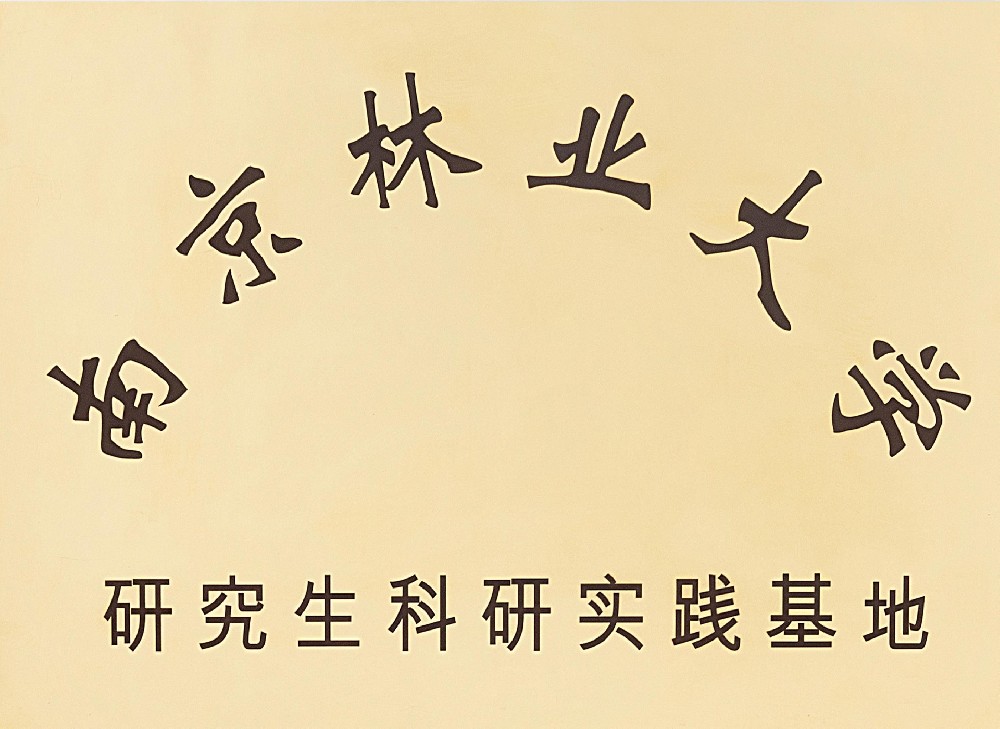 南京林业大学
研究生科研实践基地